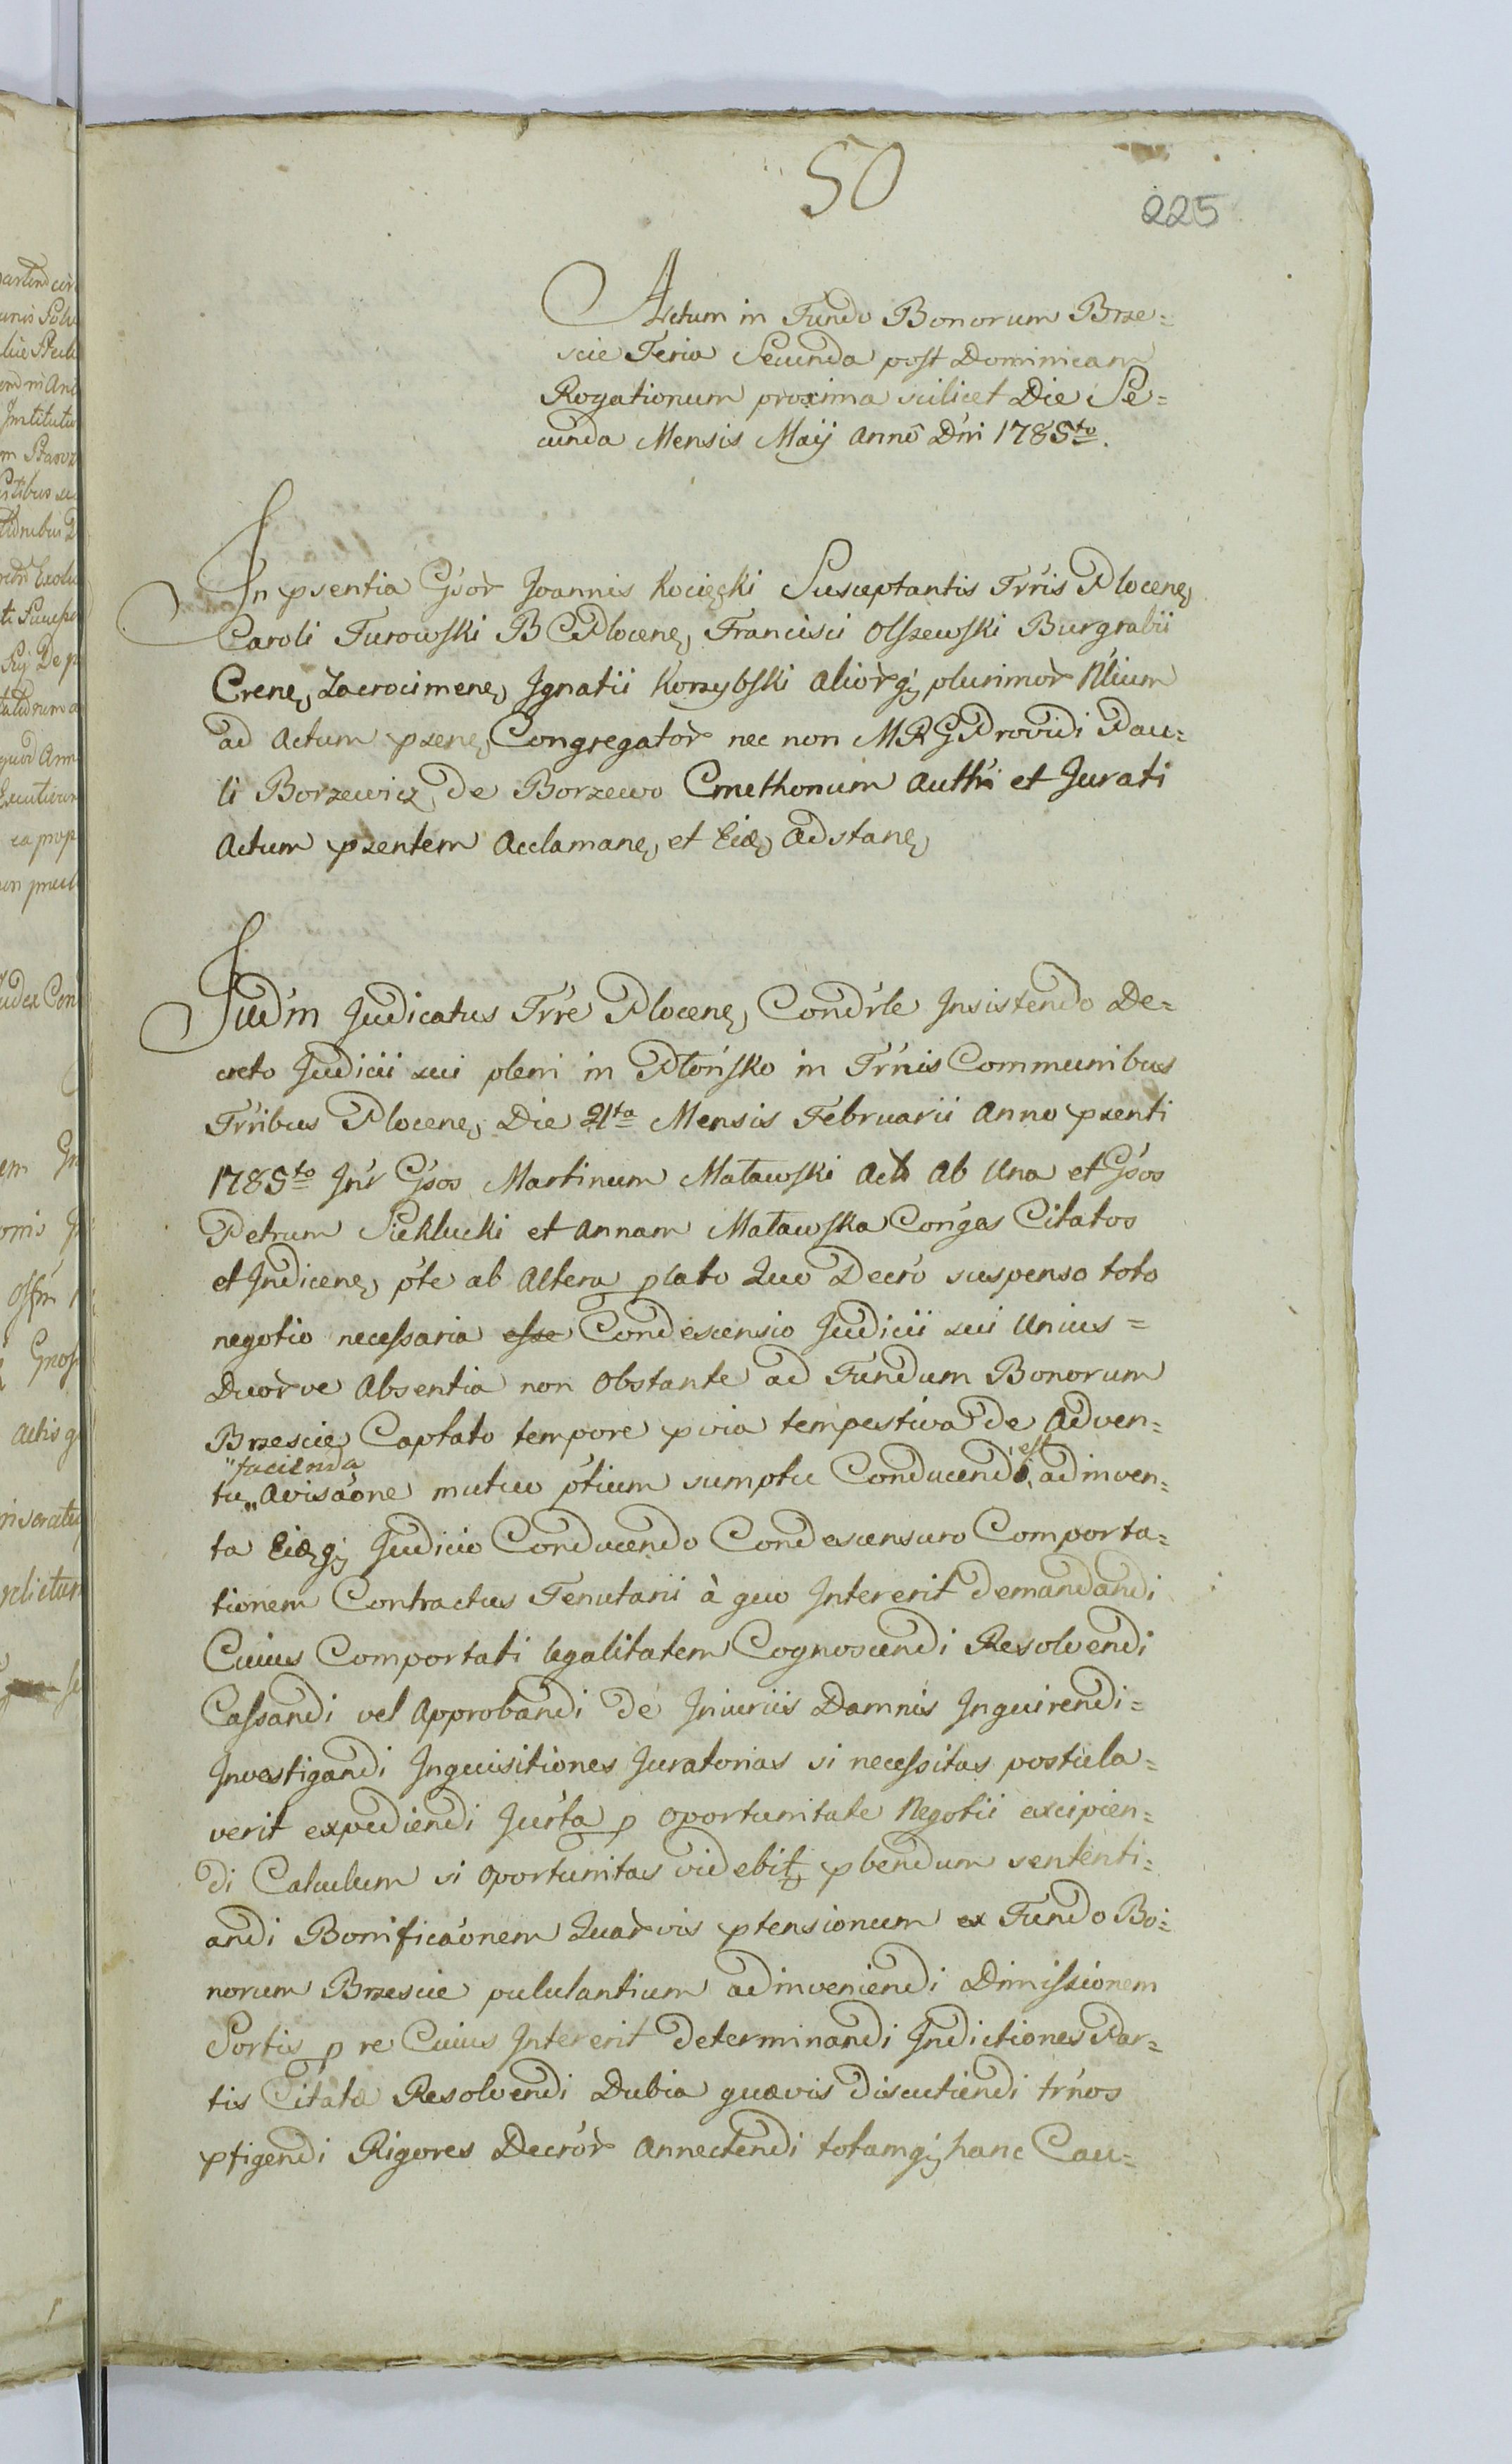 50
225
Actum in Fundo Bonorum Brze=
scie Feria Secunda post Dominicam
Rogationum proxima scilicet Die Se=
cunda Mensis Maij Anno Dni 1785to.
In psentia Gsor Joannis Kocięcki Susceptantis Trris Plocen
Caroli Turowski B C Plocen, Francisci Olszewski Burgrabii
Cren, Zacrocimen, Ignatii Korzybski Aliorq plurimor Nlium
ad Actum psen, Congregator nec non M R G Providi Pau=
li Borzewicz de Borzewo Cmethonum Authri et Jurati
Actum psentem Acclaman, et Eid, Adstan,
Judm Judicatus Trre Plocen, Condrle Insistendo De=
creto Judicii sui pleni in Płońsko in Trnis Communibus
Trribus Plocen, Die 21ta Mensis Februarii Anno psenti
1785to Intr Gsos Martinum Małowski Act Ab Una et Gsos
Petrum Sieklucki et Annam Małowska Congas Citatos
et Indicen, pte ab Altera plato Quo Decro suspenso toto
negotio necessaria esse Condescensio Judicii sui Unius=
Duorve Absentia non Obstante ad Fundum Bonorum
Brzescie Captato tempore pvia tempestiva de Adven=
"facienda
est
tu „Avisaone mutuo ptium sumptu Conducendi adinven=
ta Eidq Judicio Conducendo Condescensuro Comporta=
tionem Contractus Tenutarii à quo Intererit demandandi
Cuius Comportati legalitatem Cognoscendi Resolvendi
Cassandi vel Approbandi de Iniuriis Damnis Inquirendi=
Investigandi Inquisitiones Juratorias si necessitas postula=
verit expediendi Jurta p Oportunitate Negotii excipien=
di Calculum si Oportunitas videbit, pbendum sententi=
andi Bonificaonem Quarvis ptensionum ex Fundo Bo=
norum Brzescie pululantium adinveniendi Dimissionem
Sortis p re Cuius Intererit determinandi Indictiones Par=
tis Citatæ Resolvendi Dubia quævis discutiendi trnos
pfigendi Rigores Decror Annectendi totamq hanc Cau=